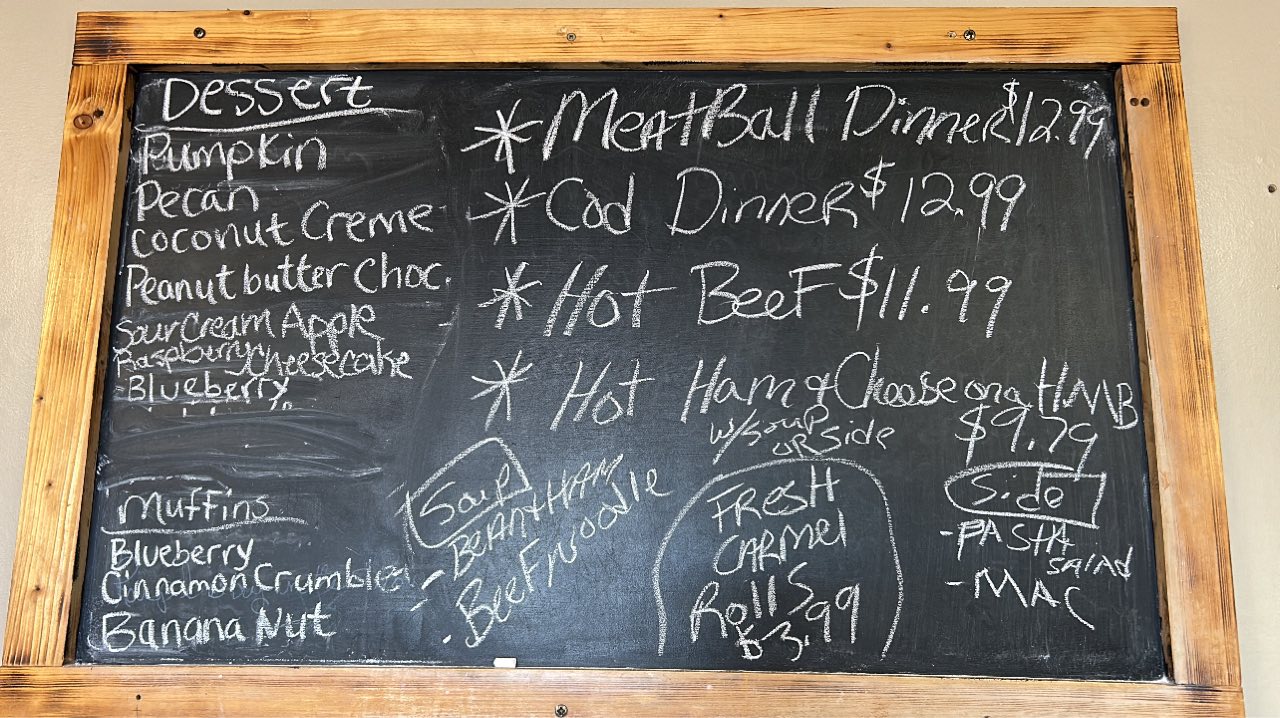 Dessert
Pumpkin
Pecan
Coconut Creme
Peanut butter Choc.
Sour Cream Apple
Raspberry Cheesecake
Blueberry
Muffins
Blueberry
Cinnamon Crumble
Banana Nut
* MeatBall Dinner $12.99
* Cod Dinner $12.99
* Hot Beef $11.99
* Hot Ham & Cheese on a HMB
w/soup
or side
$9.79
Soup
- Bean + Ham
- Beef noodle
Fresh
Carmel
Rolls
$3.99
Side
- Pasta
salad
- Mac